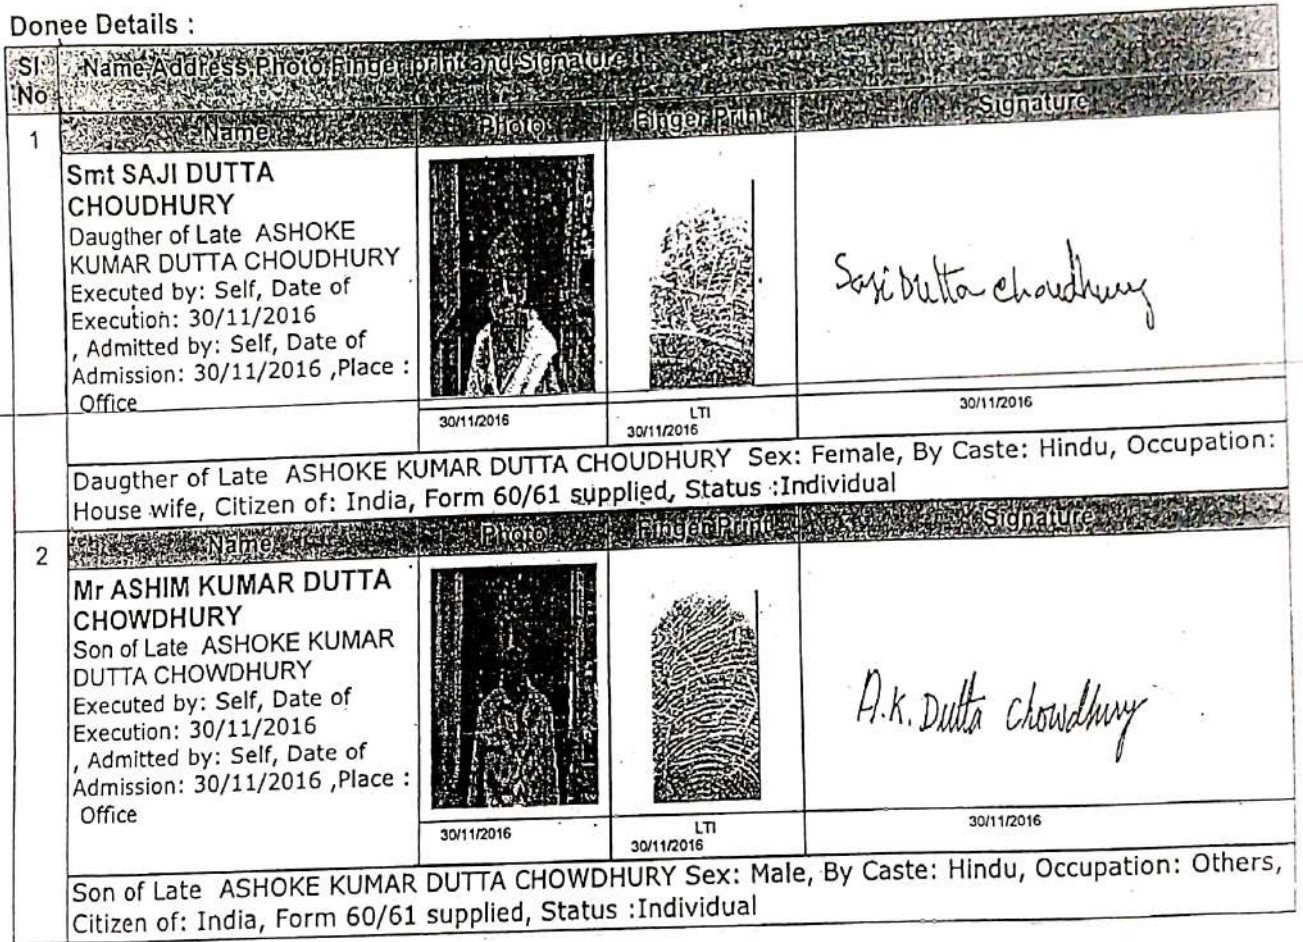 Donee Details :
Sl No
Name,Address,Photo,Finger print and Signature
1
Name
Photo
Finger Print
Signature
Smt SAJI DUTTA
CHOUDHURY
Daugther of Late ASHOKE
KUMAR DUTTA CHOUDHURY
Executed by: Self, Date of
Execution: 30/11/2016
, Admitted by: Self, Date of
Admission: 30/11/2016 ,Place :
Office
Saji Dutta Choudhury
30/11/2016
LTI
30/11/2016
30/11/2016
Daugther of Late ASHOKE KUMAR DUTTA CHOUDHURY Sex: Female, By Caste: Hindu, Occupation:
House wife, Citizen of: India, Form 60/61 supplied, Status :Individual
2
Name
Photo
Finger Print
Signature
Mr ASHIM KUMAR DUTTA
CHOWDHURY
Son of Late ASHOKE KUMAR
DUTTA CHOWDHURY
Executed by: Self, Date of
Execution: 30/11/2016
, Admitted by: Self, Date of
Admission: 30/11/2016 ,Place :
Office
A.K. Dutta Chowdhury
30/11/2016
LTI
30/11/2016
30/11/2016
Son of Late ASHOKE KUMAR DUTTA CHOWDHURY Sex: Male, By Caste: Hindu, Occupation: Others,
Citizen of: India, Form 60/61 supplied, Status :Individual